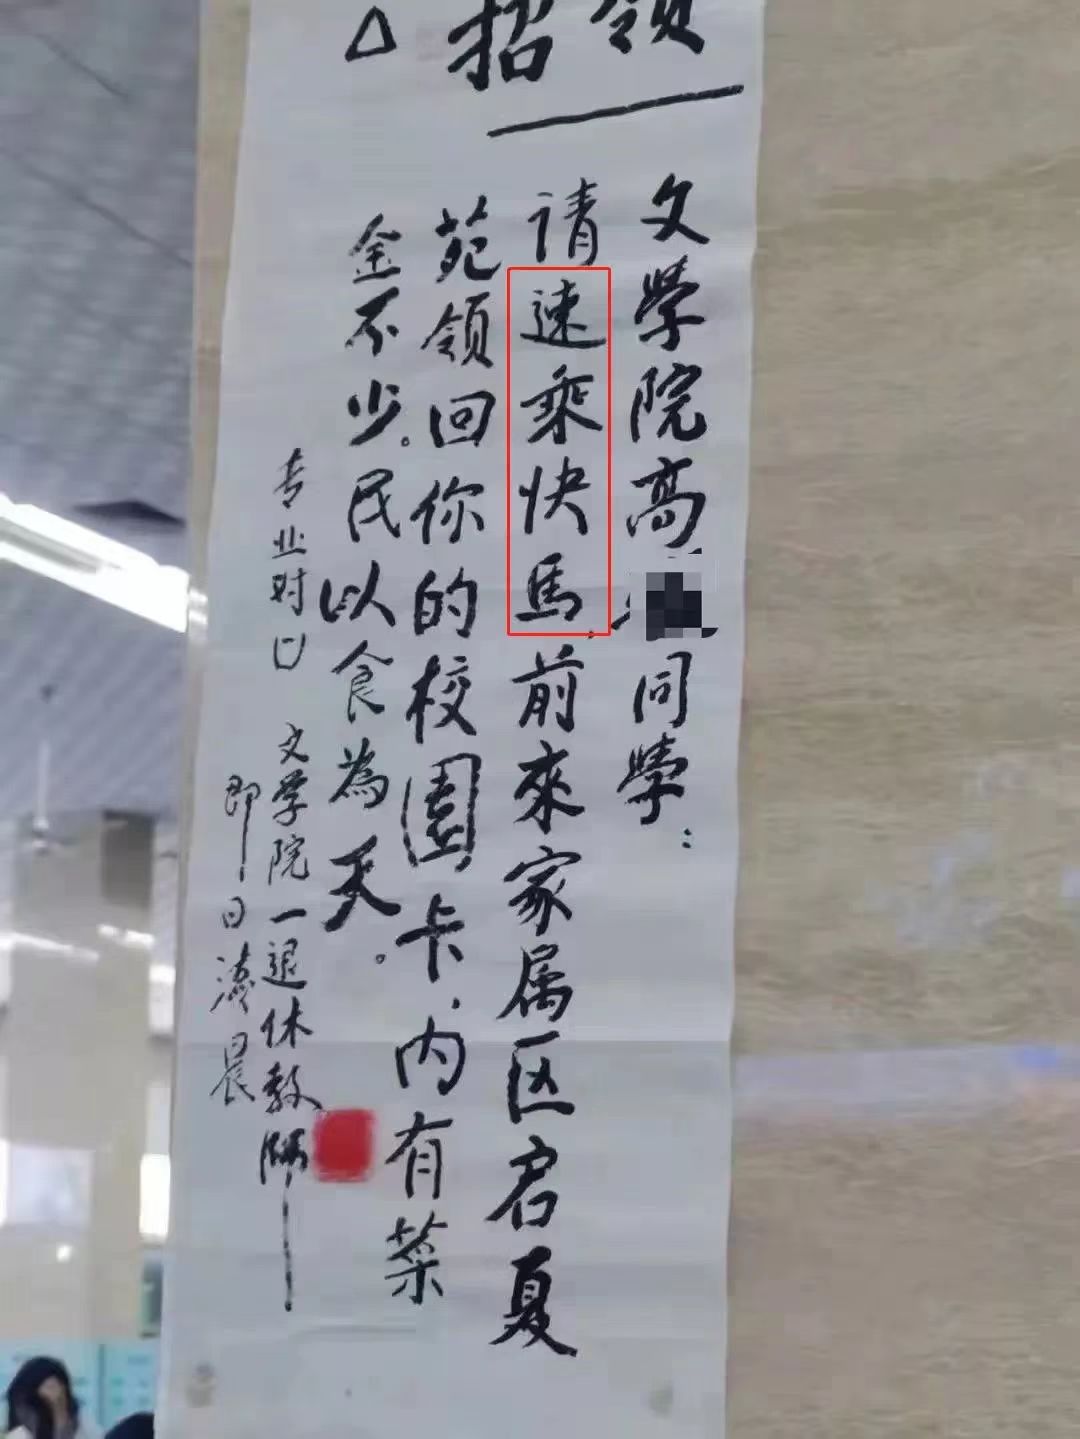 △ 招领
文學院高同學：
请速乘快馬，前來家属区君夏
苑领回你的校園卡，内有菜
金不少。民以食為天。
专业对口 文学院一退休教师
即日凌晨